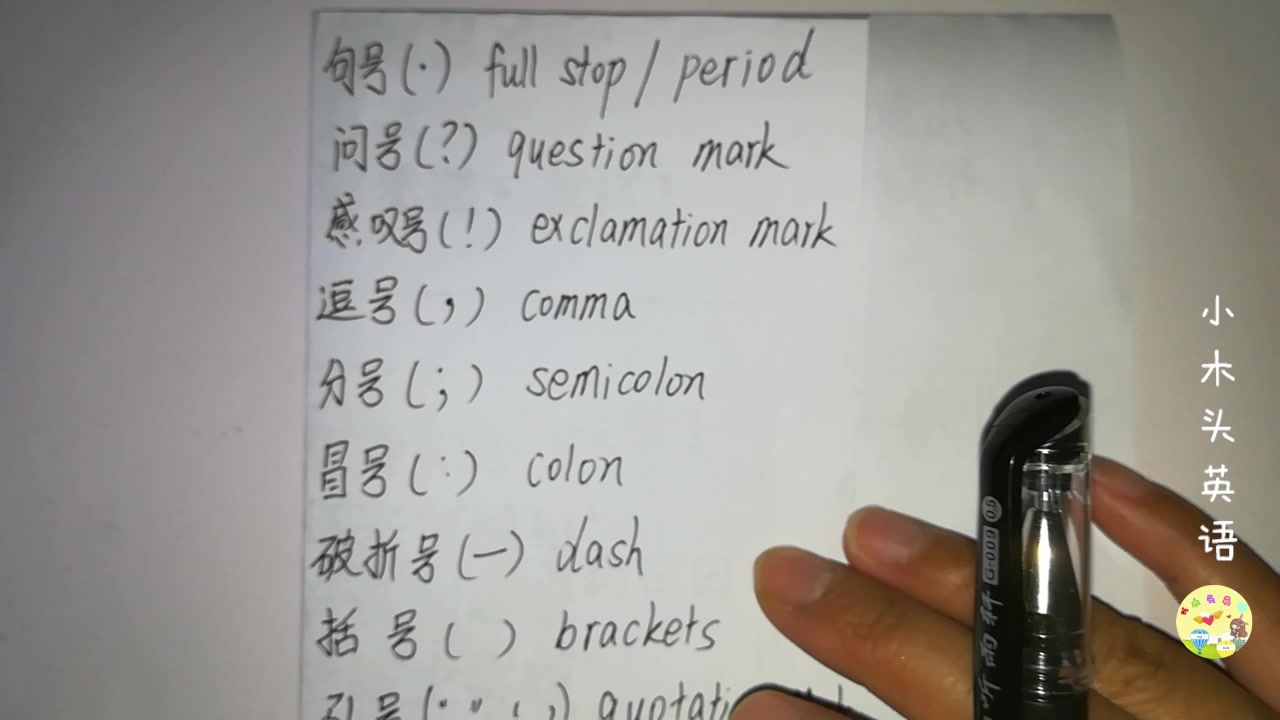 句号(.) full stop / period
问号(?) question mark
感叹号(!) exclamation mark
逗号(,) comma
分号(;) semicolon
冒号(:) colon
破折号(—) dash
括号( ) brackets
引号(" " ' ')
小木头英语
G-009 0.5